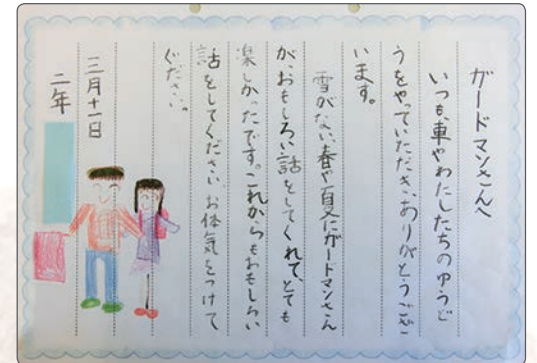 ガードマンさんへ
いつも、車やわたしたちのゆうど
うをやっていただき、ありがとうござ
います。
雪がない、春や夏にガードマンさん
が、おもしろい話をしてくれて、とても
楽しかったです。これからもおもしろい
話をしてください。お体気をつけて
ください。
三月十一日
二年